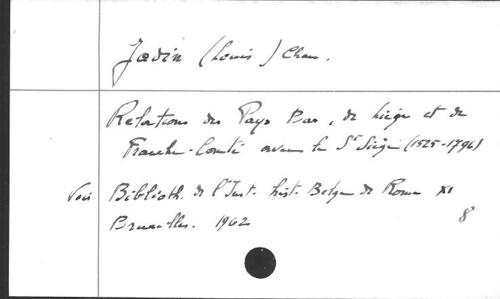 Jadin (Louis) Chan.
Relations des Pays Bas, de Liège et de
Franche-Comté avec le St Siège (1525-1796)
Voir Biblioth. de l'Inst. hist. Belge de Rome XI
Bruxelles. 1962
8